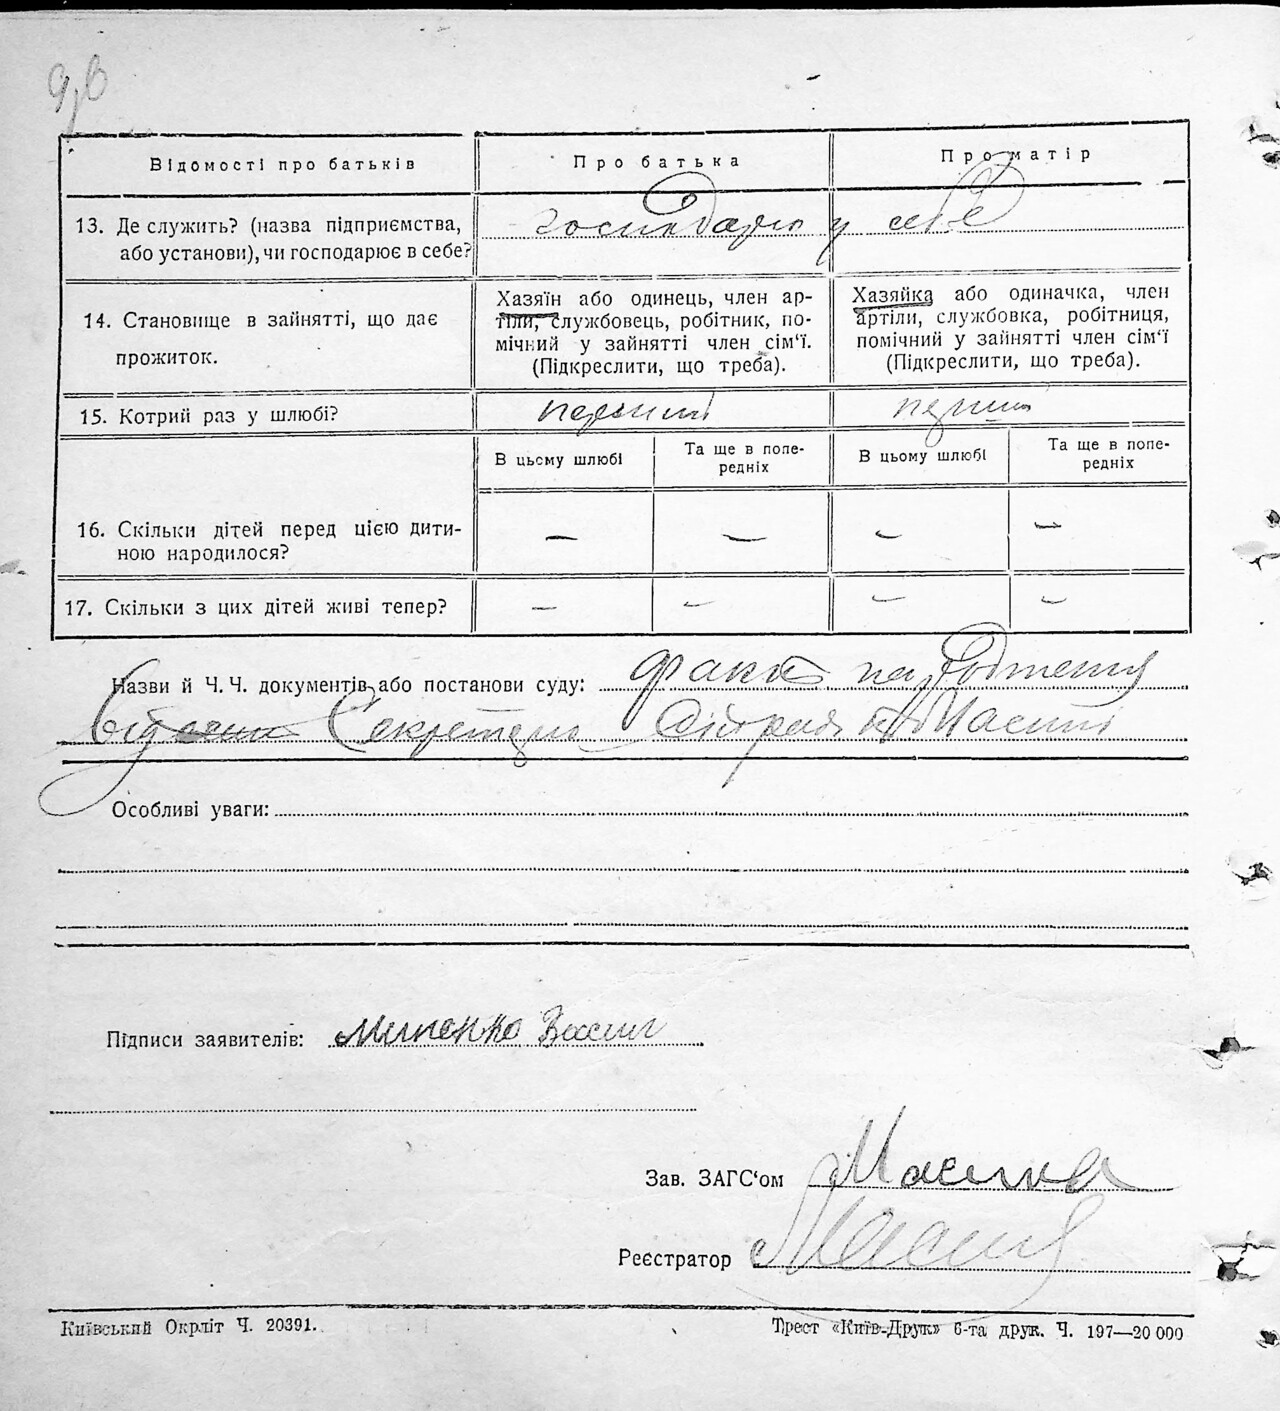 Відомості про батьків
Про батька
Про матір
13. Де служить? (назва підприємства,
або установи), чи господарює в себе?
господарю у себе
14. Становище в зайнятті, що дає
прожиток.
Хазяїн або одинець, член ар-
тіли, службовець, робітник, по-
мічний у зайнятті член сім‘ї.
(Підкреслити, що треба).
Хазяйка або одиначка, член
артіли, службовка, робітниця,
помічний у зайнятті член сім‘ї
(Підкреслити, що треба).
15. Котрий раз у шлюбі?
перший
перший
В цьому шлюбі
Та ще в попе-
редніх
В цьому шлюбі
Та ще в попе-
редніх
16. Скільки дітей перед цією дити-
ною народилося?
— — — —
17. Скільки з цих дітей живі тепер?
— — — —
Назви й Ч. Ч. документів, або постанови суду: факт народження
Секретарь
Особливі уваги:
Підписи заявителів:
Зав. ЗАГС‘ом
Реєстратор
Київський Окрліт Ч. 20391.
Трест «Київ-Друк» 6-та друк. Ч. 197—20 000